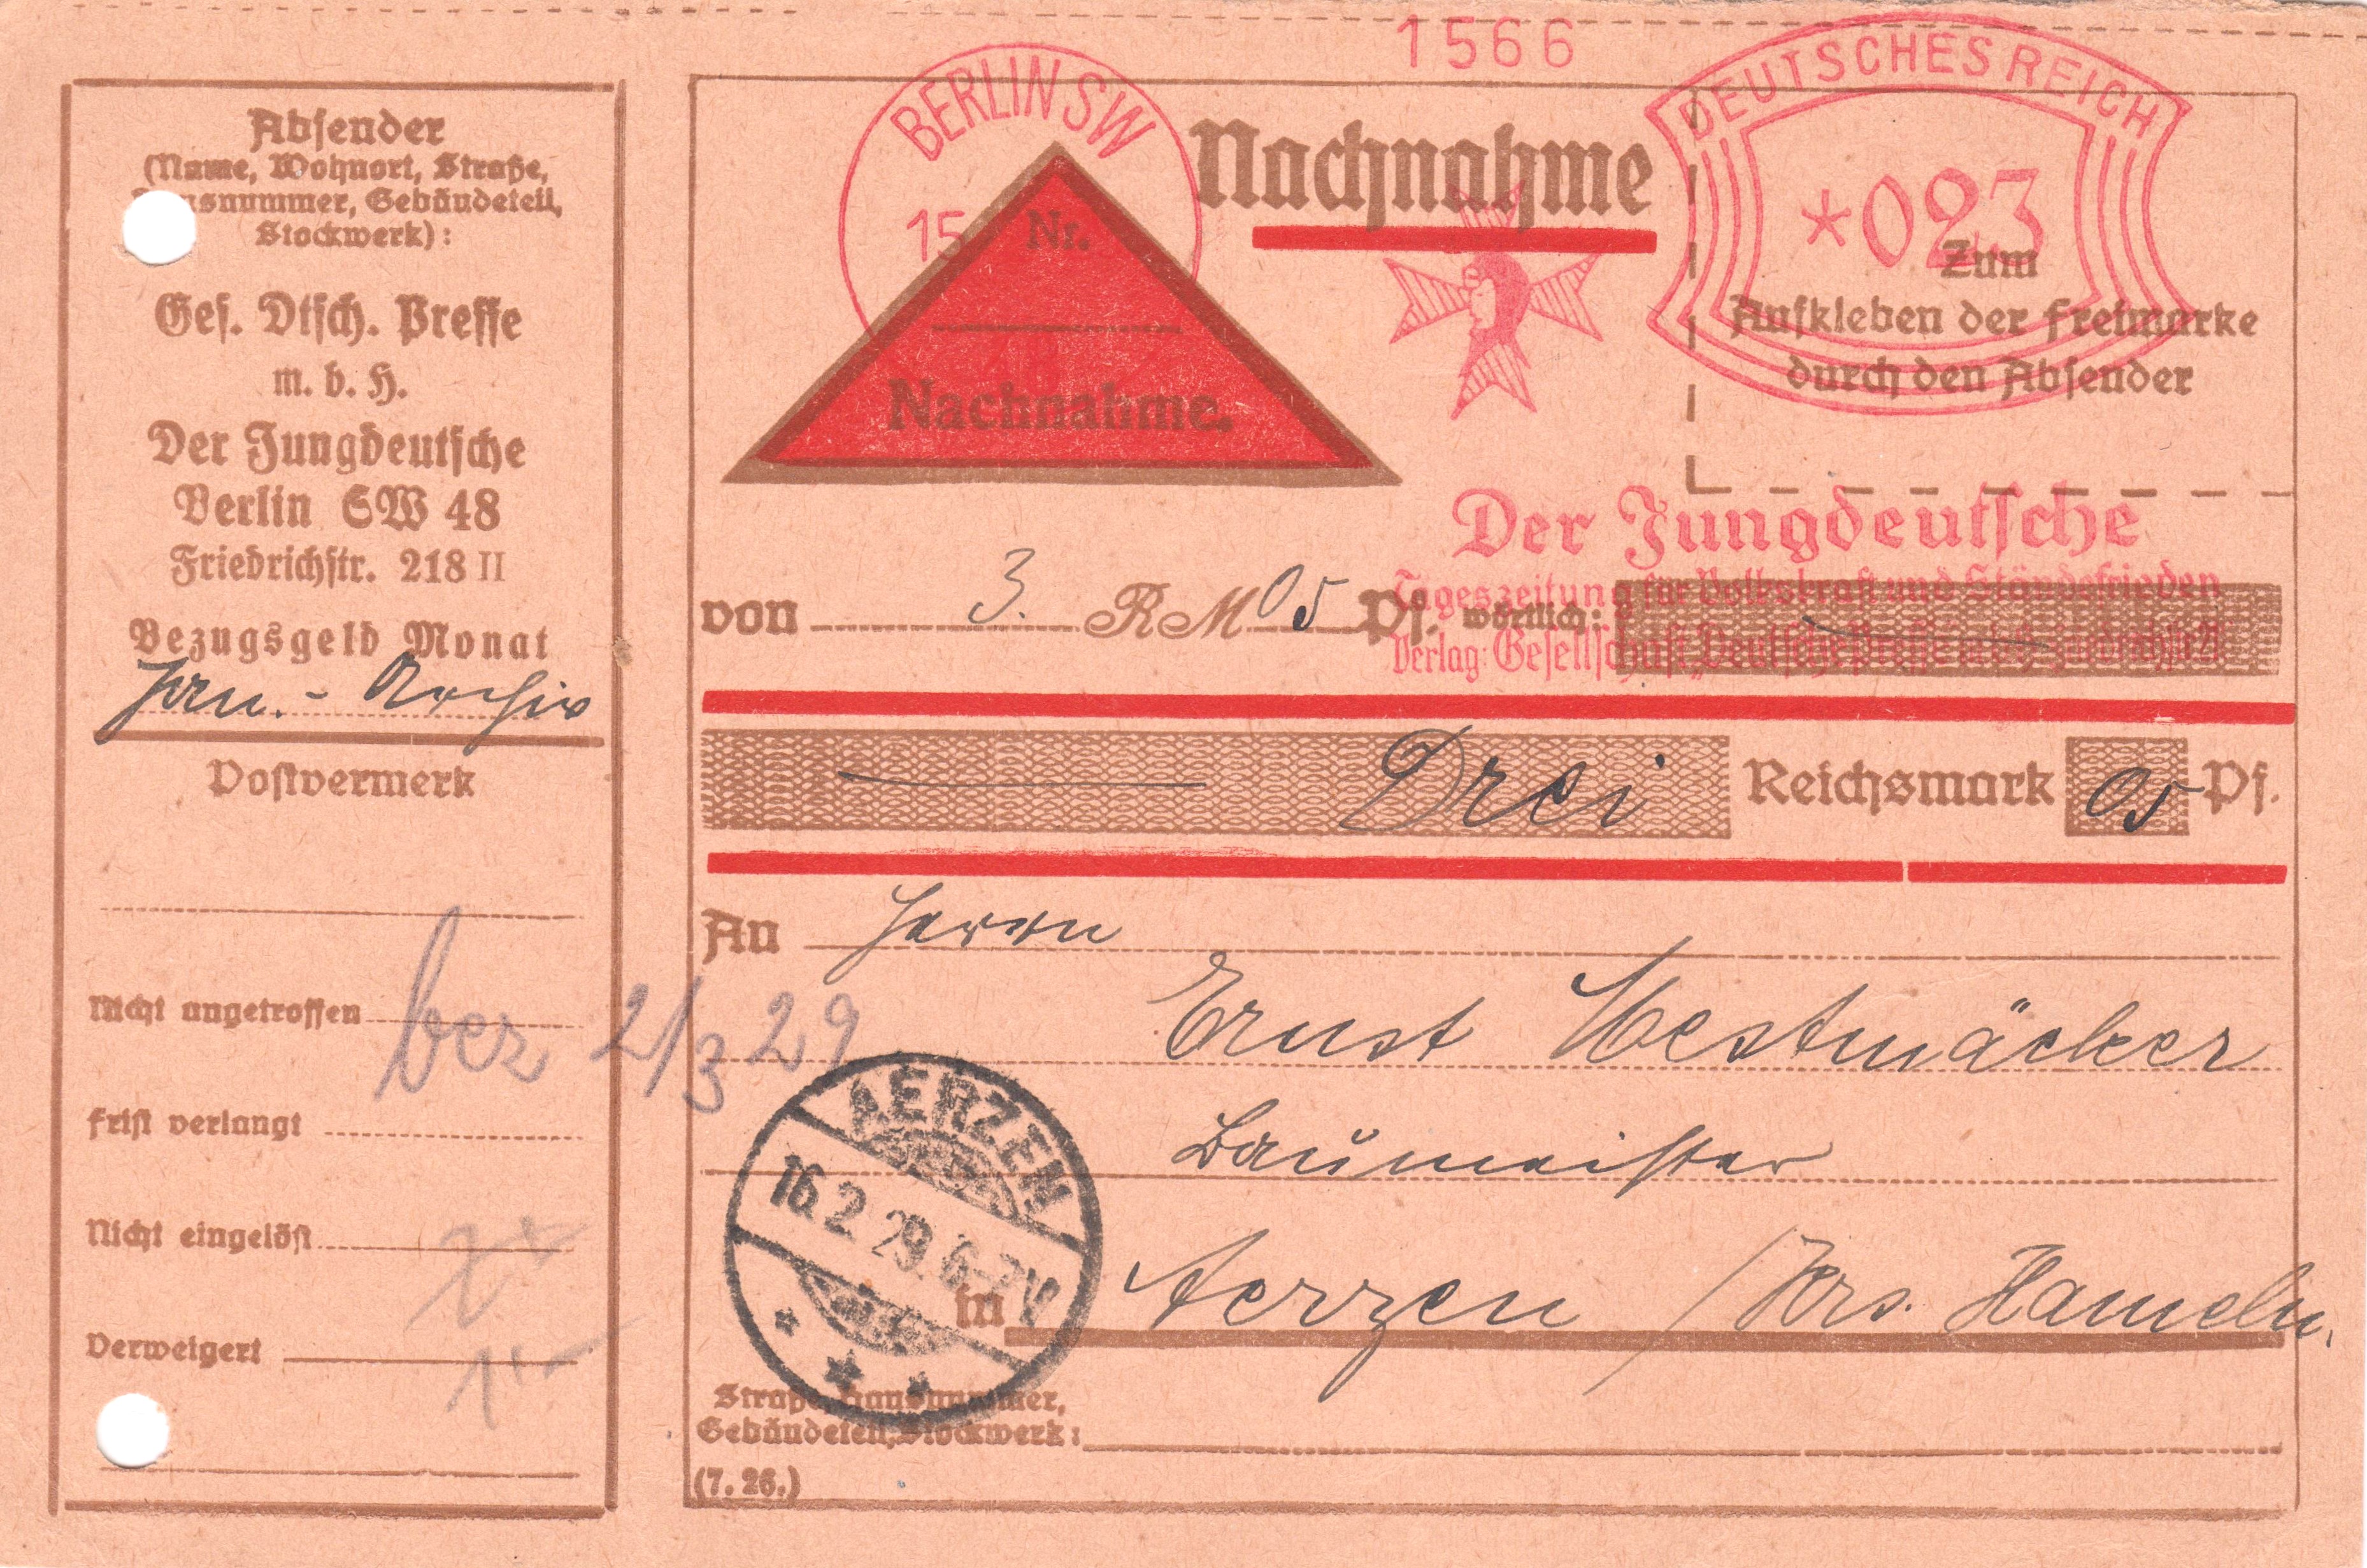 Absender
(Name, Wohnort, Straße,
Gebäudeteil,
Stockwerk):
Ges. Dtsch. Presse
m. b. H.
Der Jungdeutsche
Berlin SW 48
Friedrichstr. 218 II
Bezugsgeld Monat
Jan. - Archiv
Postvermerk
Nicht angetroffen
bez 2/3 29
Frist verlangt
Nicht eingelöst
Verweigert
1566
BERLIN SW
15
Nachnahme
DEUTSCHES REICH
*023
Zum
Aufkleben der Freimarke
durch den Absender
Nr.
Nachnahme.
Der Jungdeutsche
Tageszeitung für Volkskraft und Ständefrieden
Verlag: Gesellschaft „Deutsche Presse
von 3. RM 05 Pf. wörtlich:
Drei Reichsmark 05 Pf.
An Herrn
Ernst Westmäcker
Baumeister
AERZEN
16.2.29.6-7V
in Aerzen / Krs. Hameln.
Straße, Hausnummer,
Gebäudeteil, Stockwerk:
(7. 26.)